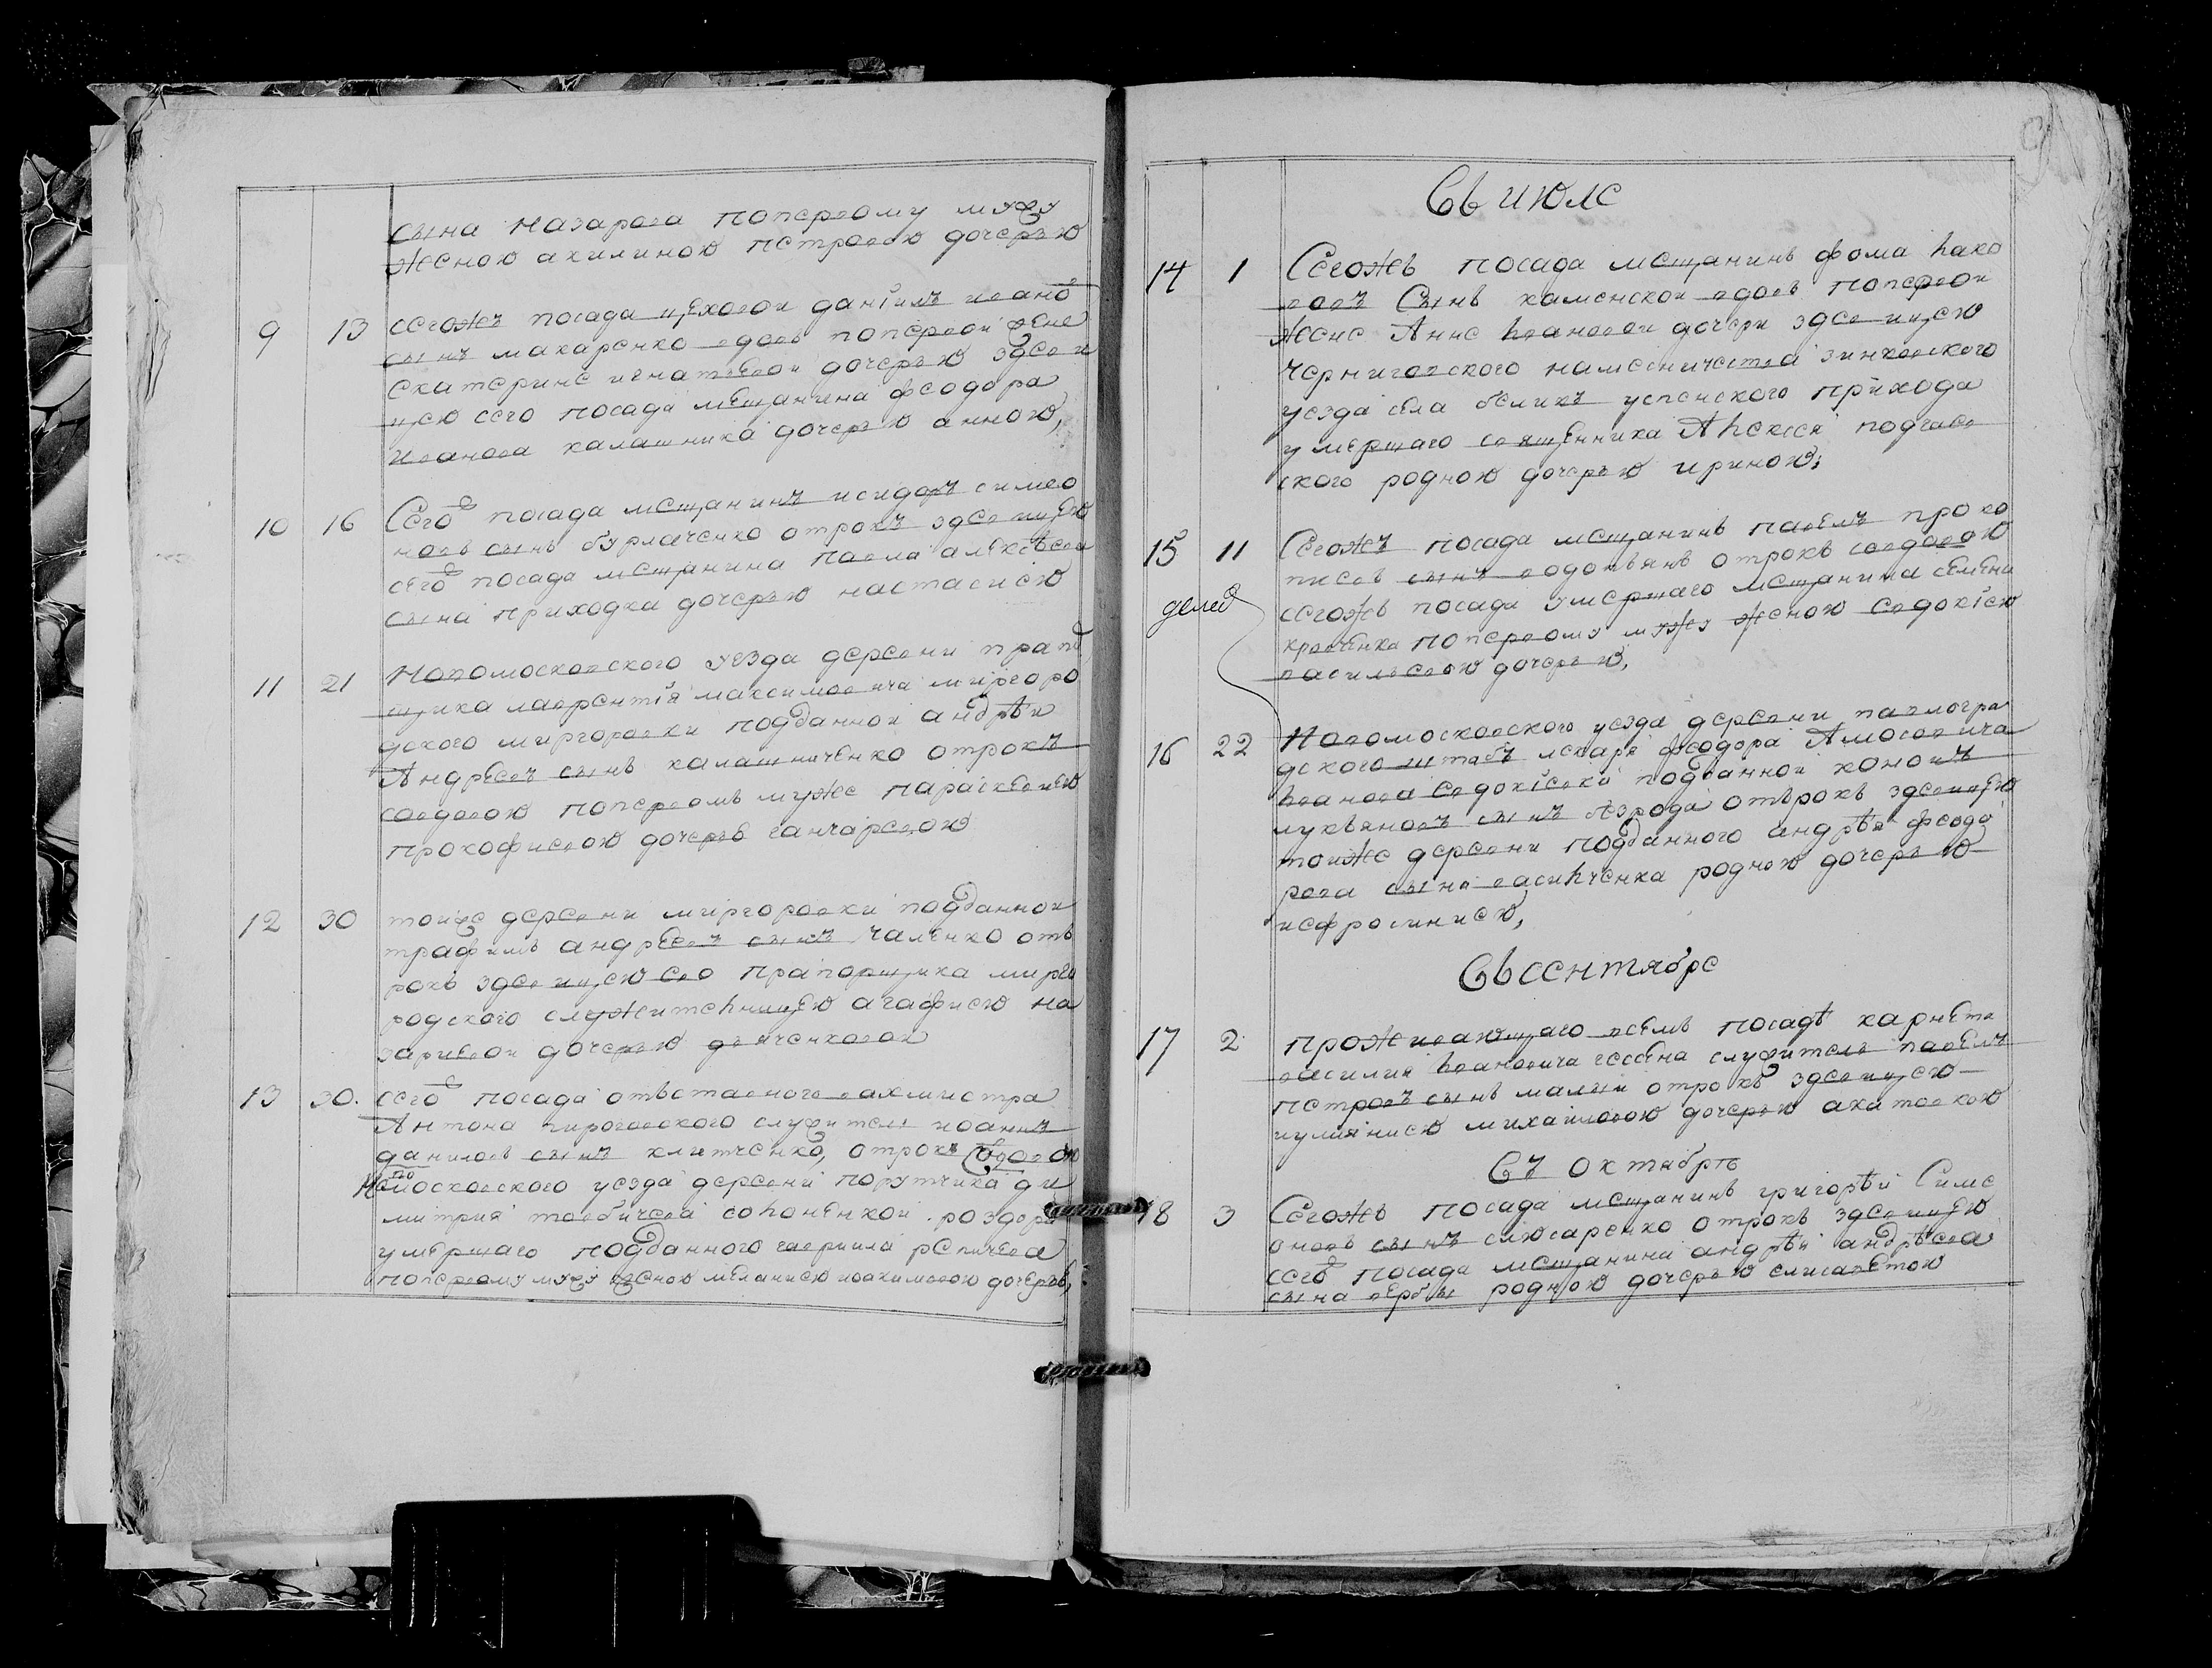 сына назарова поперъвому мужу
женою акилиною петровою дочерью
9 13 сегожъ посада цеховои даніилъ иванов
сынъ макаренко вдовъ поперъвои жене
екатерине игнатьевои дочерью здеви
цею сего посада мещанина феодора
иванова калашника дочерью анною,
10 16 Сего посада мещанинъ исидоръ симео
новъ сынъ бурлаченко отрокъ здевицею
сего посада мещанина павла алексеева
сына приходка дочерью настасиею
11 21 Новомосковского уезда деревни прапор
щика лаврентія максимовича миргоро
дского миргоровки подданной андрѣи
Андреевъ сынъ калашниченко отрокъ
совдовою поперъвомъ муже параскевиею
прокофиевою дочерью ганчаревою
12 30 тоиже деревни миргоровки подданнои
трафимъ андреевъ сынъ чаленко отъ
рокъ здевицею ево прапорщика мирго
родского служительницею агафиею на
зариевои дочерью дьяченковои
13 30. сего посада отъставного вахмистра
Антона пироговского служитель иоаннъ
даниловъ сынъ климченко, отрокъ совдовою
Новомосковского уезда деревни порутчика ди
митрия
умершаго подданного гавриила репичева
поперъвому мужу женою меланиею иоакимовою дочерью,
Съ июле
14 1 Сегожъ посада мещанинъ фома яко
вовъ Сынъ каменскои вдовъ поперъвои
жене Анне Ивановои дочери здевицею
черниговского намесничества зинковского
уезда села беликъ успенского прихода
умершаго священника Алексея подгаев
ского родною дочерью ириною,
15 11 Сегожъ посада мещанинъ павелъ проко
пиевъ сынъ водопьянъ отрокъ совдовою
сегожъ посада умершаго мещанина семена
кравченка поперъвому мужу женою евдокіею
васильевою дочерью,
16 22 Новомосковского уезда деревни павлогра
дского штабъ лекаря феодора Амосовича
иванова евдокіевки подданнои кононъ
лукьяновъ сынъ отърокъ здевицею
тоиже деревни подданного андрѣя феодо
рова сына васильченка родною дочерью
иефросиниею,
Съ сентябре
17 2 Проживающаго всемъ посадѣ карнета
василия ивановича гессена служитель павелъ
петровъ сынъ малыи отрокъ здевицею
иулияниею михаиловою дочерью
Съ октябрѣ
18 3 Сегожъ посада мещанинъ григорѣи Симе
оновъ сынъ слюсаренко отрокъ здевицею
сего посада мещанина андрѣи андрѣева
сына вербы родною дочерью елисаветою